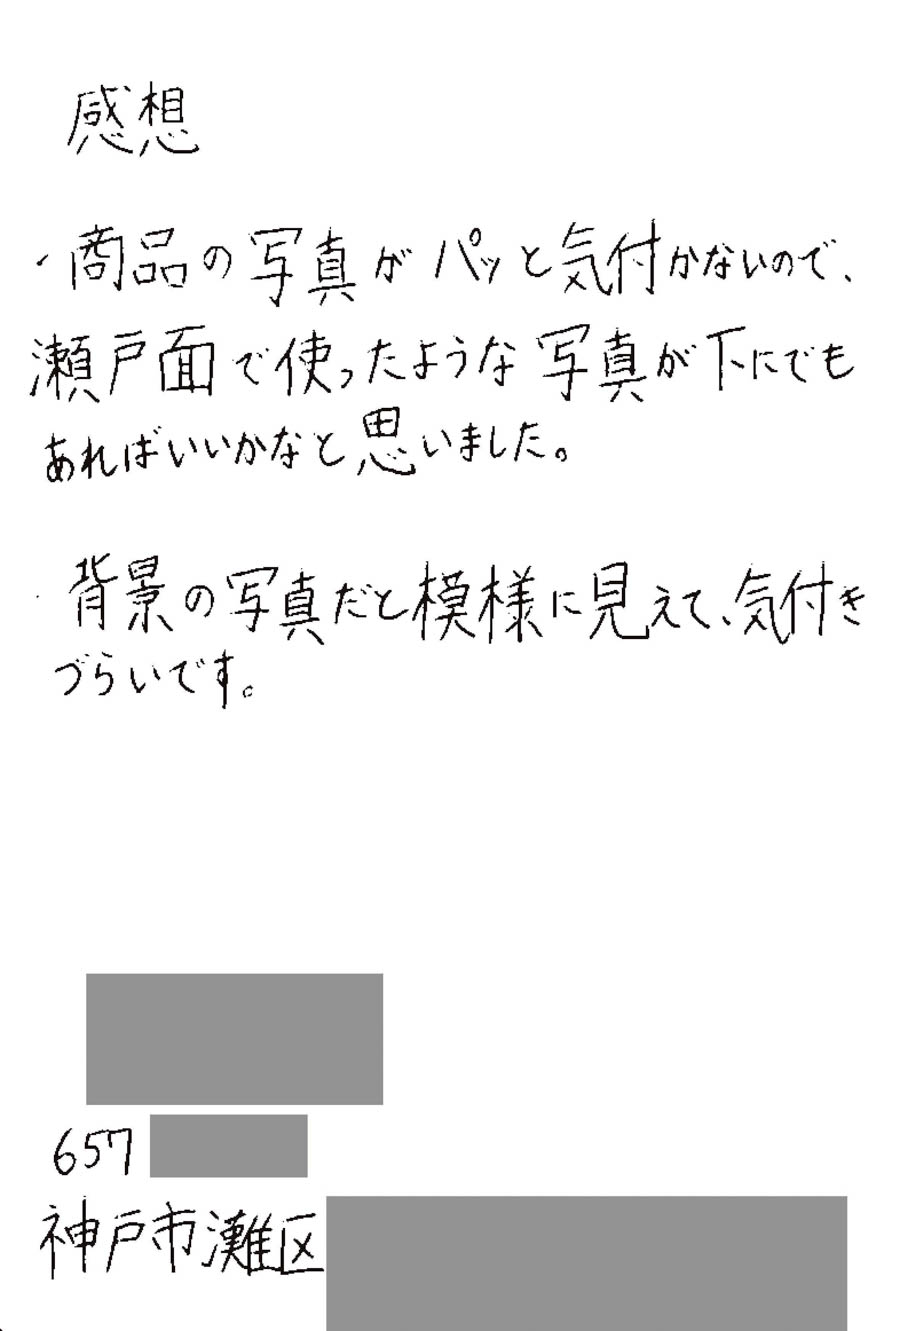 感想
・商品の写真がパッと気付かないので、
瀬戸面で使ったような写真が下にでも
あればいいかなと思いました。
・背景の写真だと模様に見えて、気付き
づらいです。
657
神戸市灘区